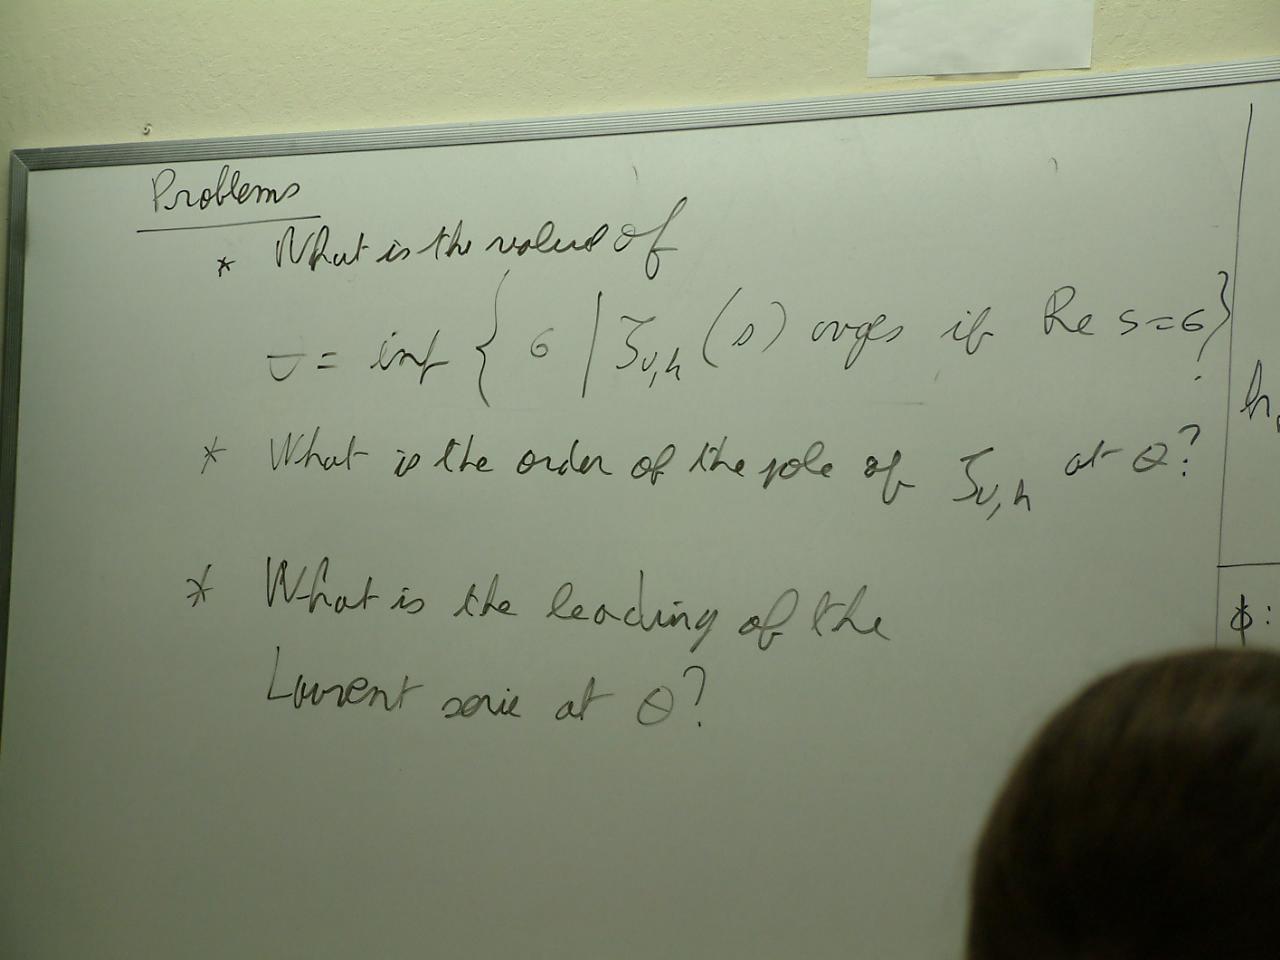 Problems
* What is the value of
= inf { σ | ζ_{U,h} (s) cvges if Re s = σ } ?
* What is the order of the pole of ζ_{U,h} at θ?
* What is the leading of the
Laurent serie at θ?
h
ϕ: